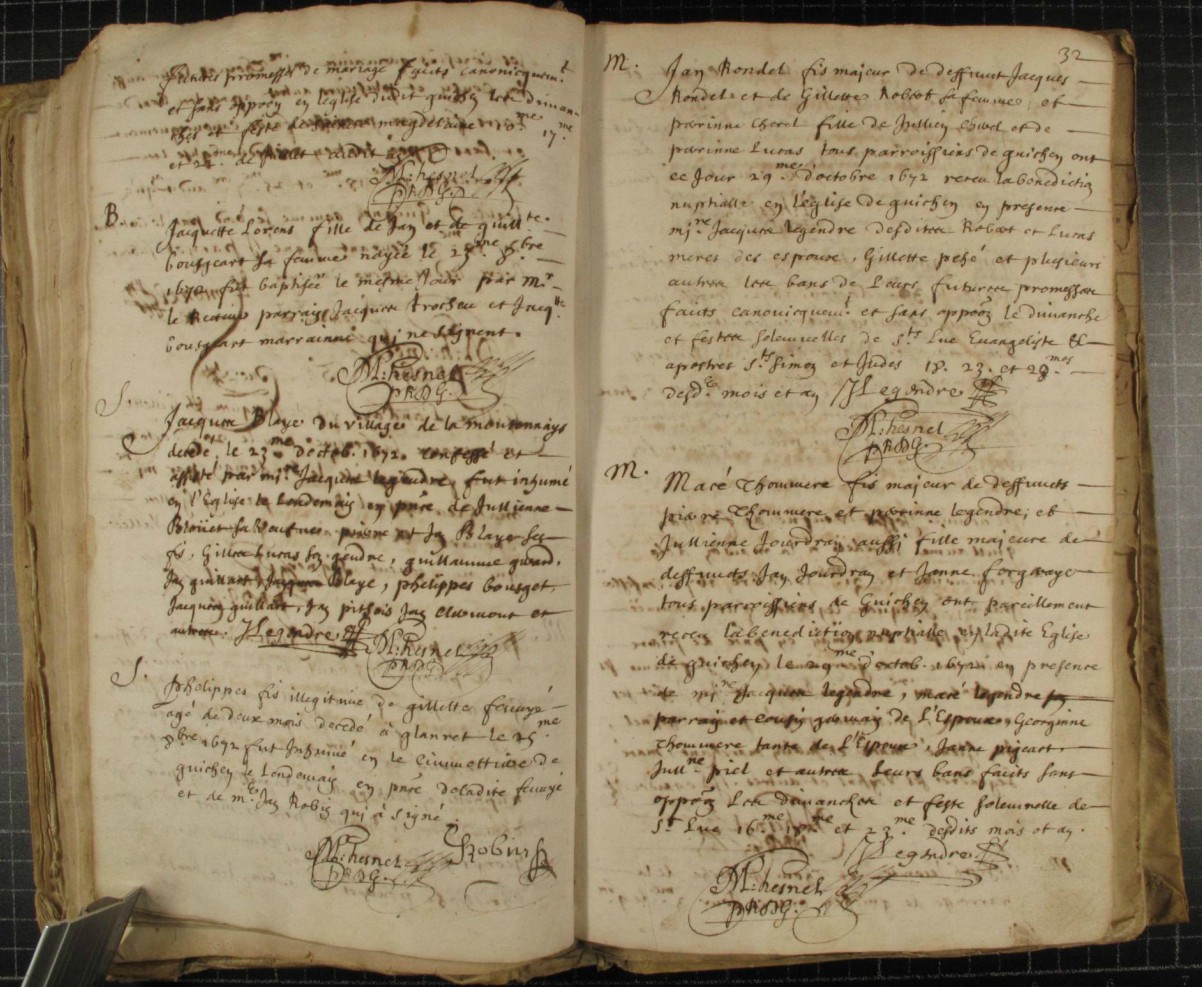 futures promesses de mariage faicts canonicquem.t
et sans oppoõn en l'eglise dudit guichen les diman-
ches et feste de magdelaine 17.me
et 24. de juillet audit
M: chesnel
PRDG.
B.
Jacquette Lorens fille de Jan et de guill.te
bousgeart sa femme nayée le 23.me 8.bre
1672 fut baptisée le mesme jour par M.r
le Recteur parrain Jacques trocheu et Jacq.tte
bousgeart marrainne qui ne signent.
M: chesnel
PRDG.
S.
Jacques Blaye du village de la moutonnays
decedé le 23.me d'octob. 1672. confessé et
assisté par mi.re Jacques legendre, fut inhumé
en l'Eglise le Londemain en pñce de Jullienne
sa veufve, pierre et Jan Blaye ses
fis, Gilles Lucas son gendre, guillaume
Jan guillart, Jacques Blaye, phelippes bousget
Jacques guillart, Jan pithois Jan et
autres. J Legendre
M: chesnel
PRDG
S.
phelippes fis illegitime de gillette
agé de deux mois decedé à glanret le 25.me
8.bre 1672 fut Inhumé en le Cimmettiere de
guichen le Londemain en pñce de ladite
et de m.e Jan Robin qui à signé
M: chesnel
PRDG.
J Robin
32
M.
Jan Rondel fis majeur de deffunt Jacques
Rondel et de Gillette Robert sa femme, et
perinne Cherel fille de Jullien Cherel et de
perinne Lucas tous parroissiens de guichen ont
ce Jour 29.me d'octobre 1672 receu la benediction
nuptialle en l'eglise de guichen en presence
mi.re Jacques legendre desdites Robert et Lucas
meres des espoux, Gillette et plusieurs
autres les bans de Leurs futures promesses
faicts canonicquem.t et sans oppoõn le dimanche
et festes solemnelles de S.t Luc Evangeliste &
apostres S.ts Simon et Judes 18. 23. et 28.mes
desd.ts mois et an J Legendre
M: chesnel
PRDG.
M.
Macé Thommere fis majeur de deffuncts
pierre Thommere et perinne legendre, et
Jullienne Jourdran aussi fille majeure de
deffuncts Jan Jourdran et Janne
tous parroissiens de Guichen ont pareillement
receu la benediction nuptialle en ladite Eglise
de guichen le 29.me d'octob. 1672 en presence
de mi.re Jacques legendre, macé legendre
parrain et cousin germain de l'Espoux, Georginne
Thommere tante de l'Espoux, Janne
Jull.ne piel et autres Leurs bans faicts sans
oppoõn Les dimanches et feste solemnelle de
S.t Luc 16.me 18.me et 23.me desdits mois et an.
J Legendre
M: chesnel
PRDG.